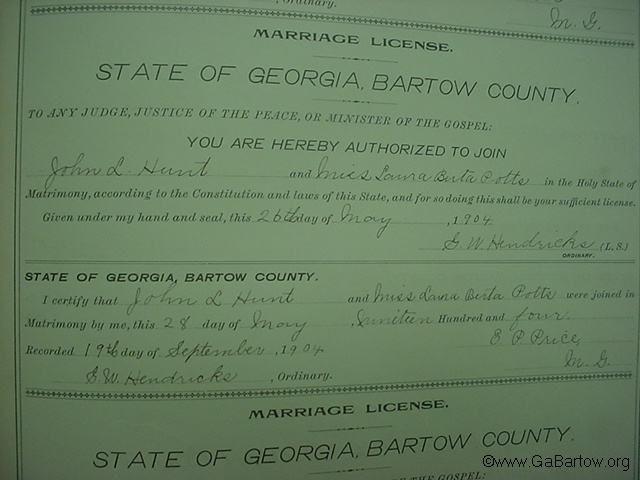 , Ordinary.
M. G.
MARRIAGE LICENSE.
STATE OF GEORGIA, BARTOW COUNTY.
TO ANY JUDGE, JUSTICE OF THE PEACE, OR MINISTER OF THE GOSPEL:
YOU ARE HEREBY AUTHORIZED TO JOIN
John L Hunt and Miss Laura Berta Potts in the Holy State of
Matrimony, according to the Constitution and laws of this State, and for so doing this shall be your sufficient license.
Given under my hand and seal, this 26th day of May , 1904
G. W. Hendricks (L. S.)
ORDINARY.
STATE OF GEORGIA, BARTOW COUNTY.
I certify that John L Hunt and Miss Laura Berta Potts were joined in
Matrimony by me, this 28 day of May , Nineteen Hundred and four.
E P Price,
M. G.
Recorded 19th day of September , 1904
G. W. Hendricks , Ordinary.
MARRIAGE LICENSE.
STATE OF GEORGIA, BARTOW COUNTY.
OF THE GOSPEL:
©www.GaBartow.org